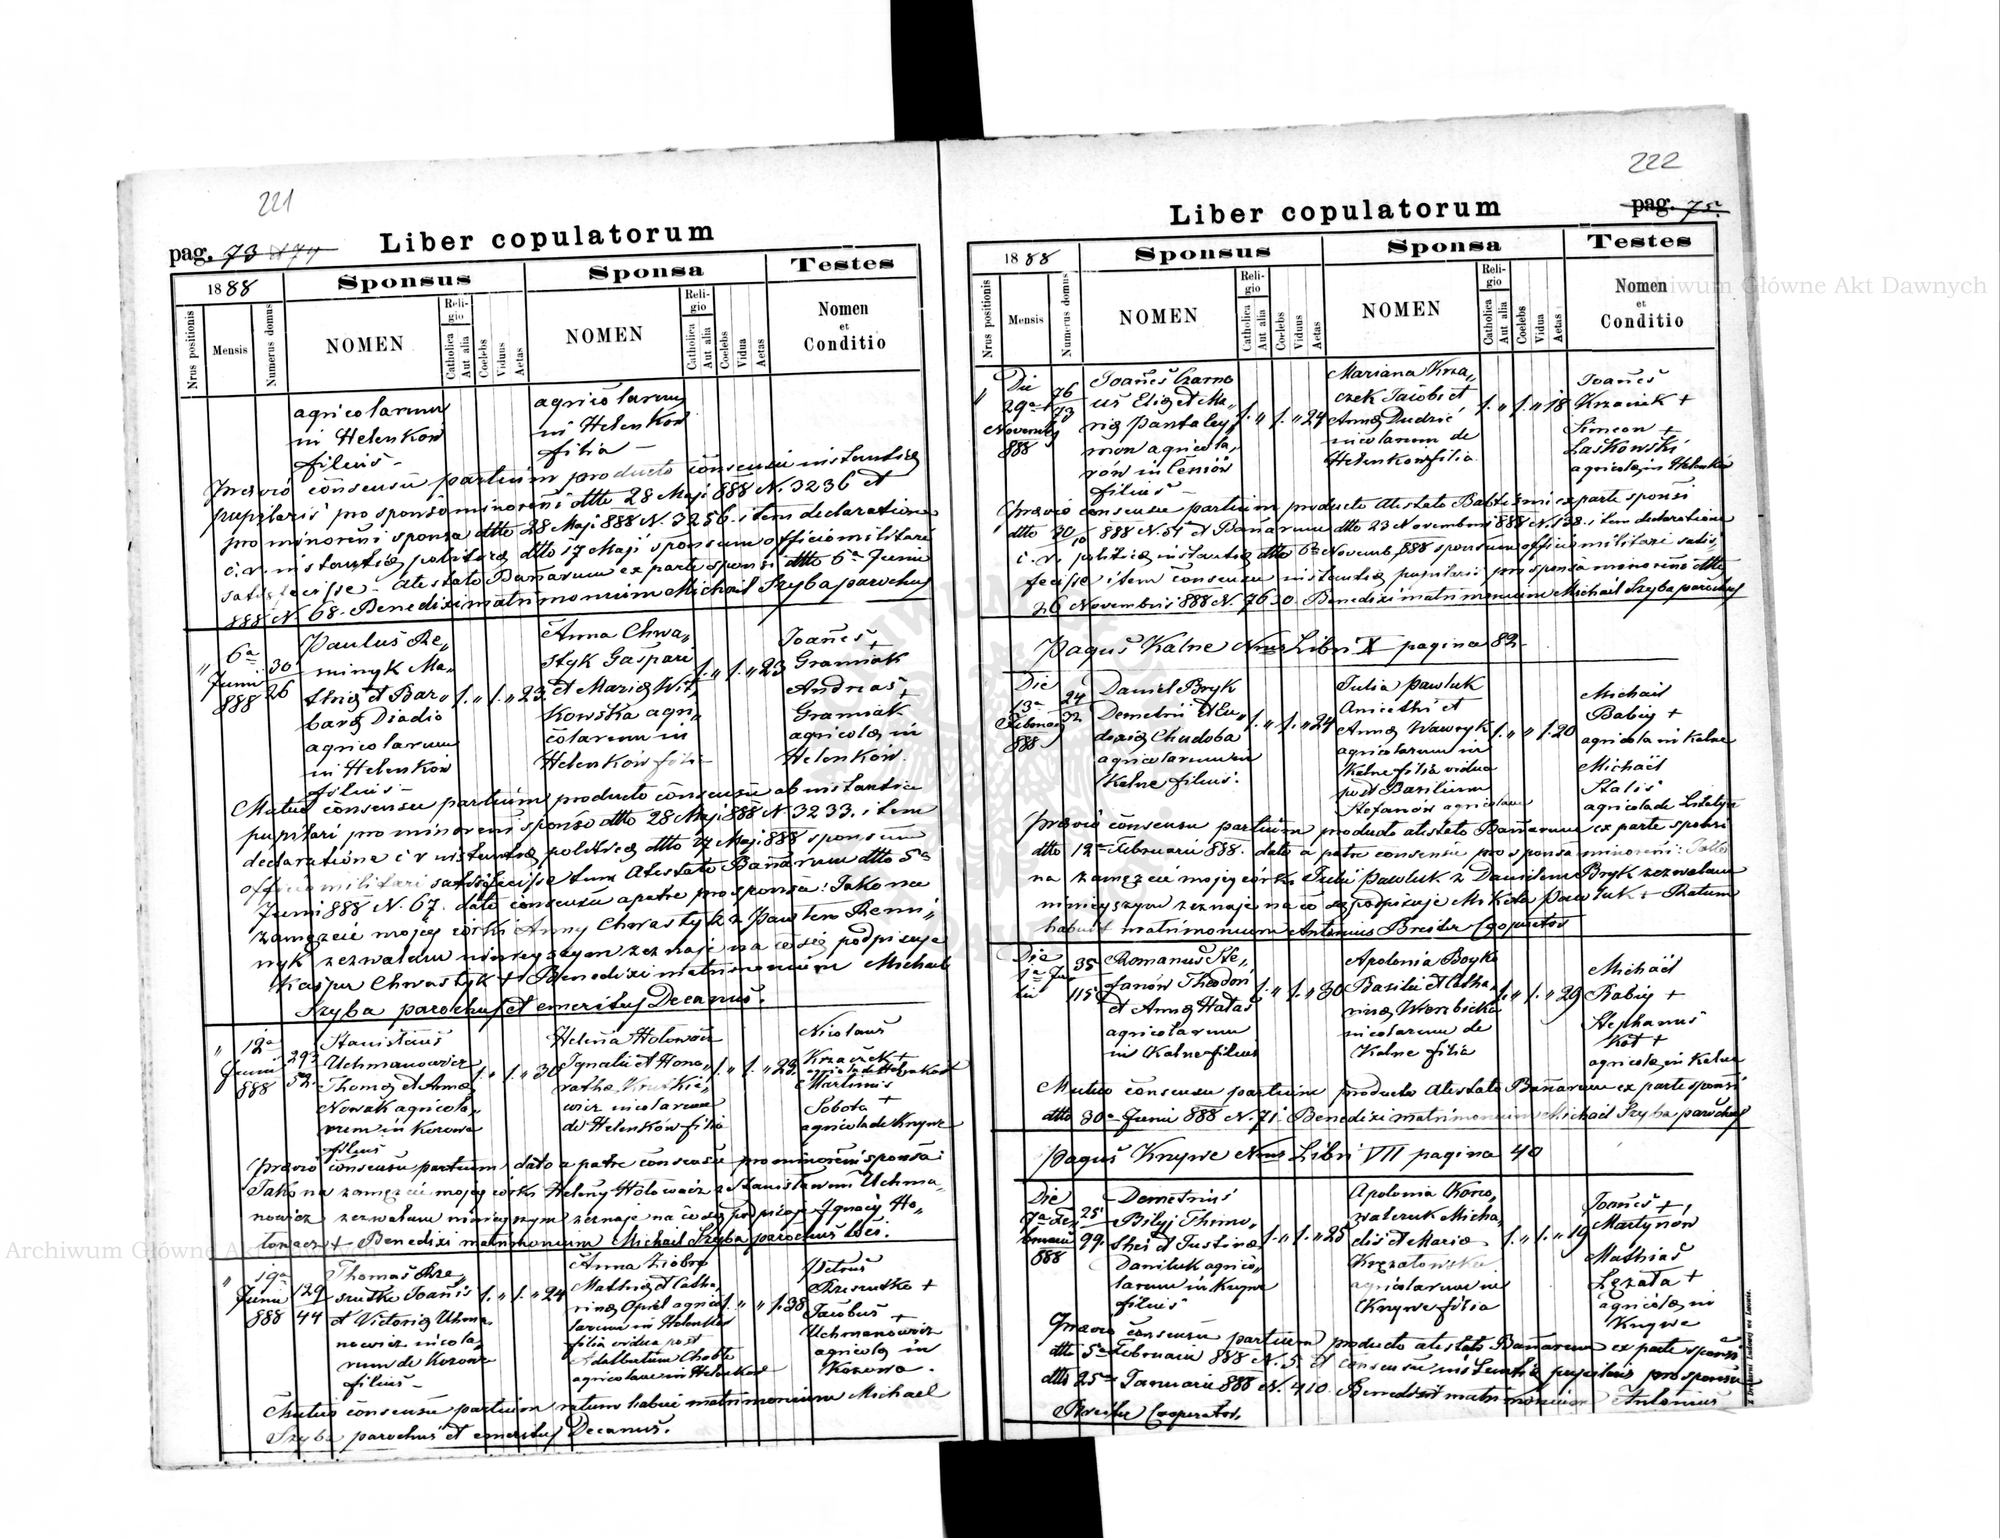 221
pag. 73 et 74
Liber copulatorum
1888
Sponsus
Sponsa
Testes
Nrus positionis
Mensis
Numerus domus
NOMEN
Religio
Catholica
Aut alia
Coelebs
Viduus
Aetas
NOMEN
Religio
Catholica
Aut alia
Coelebs
Vidua
Aetas
Nomen
et
Conditio
agricolarum
in Helenków
filius –
agricolarum
in Helenków
filia –
Praevio consensu partium producto consensu instantiae
pupilaris pro sponso minoreni dtto 28 Maji 888 N. 3236 et
pro minoreni sponsa dtto 28 Maji 888 N. 3256. item declaratione
c. r. instantiae politicae dtto 17 Maji sponsum officio militari
satisfecisse – atestato Bannorum ex parte sponsi dtto 6a Junii
888 N. 68. Benedixi matrimonium Michael Szyba parochus
"
6a
Junii
888
30
26
Paulus Re„
minyk Ma„
thiae et Bar„
barae Diadio
agricolarum
in Helenków
filius –
1. " 1. " 23.
Anna Chwa„
styk Gaspari
et Mariae Wit
kowska agri„
colarum in
Helenków filia
1. " 1. " 23
Joannes +
Gramiak
Andreas +
Gramiak
agricolae in
Helenków.
Mutuo consensu partium producto consensu ab instantia
pupilari pro minoreni sponso dtto 28 Maji 888 N. 3233. item
declaratione c r instantiae politicae dtto 17 Maji 888 sponsum
officio militari satisfecisse tum atestato Bannorum dtto 5a
Junii 888 N. 67. dato consensu a patre pro sponsa: Jako na
zamęzcie mojej córki Anny Chwastyk z Pawłem Remi„
nyk zezwalam niniejszym zeznaje na co się podpisuje
Kasper Chwastyk + Benedixi matrimonium Michael
Szyba parochus et emeritus Decanus.
"
12a
Junii
888
293
52.
Stanislaus
Uchmanowicz
Thomae et Annae
Nowak agricola„
rum in Kozowa
filius
1. " 1. " 30
Helena Holowacz
Ignatii et Hono„
rathae
wicz incolarum
de Helenków filia
1. " 1. " 23.
Nicolaus
Krzaczek +
agricola de Helenków
Martinus
Sobota +
agricola de Krzywe
Praevio consensu partium dato a patre consensu pro minoreni sponsa:
Jako na zamęzcie mojej córki Heleny Hołowacz z Stanisławem Uchma„
nowicz zezwalam niniejszym zeznaje na co się podpisuje Ignacy Ho„
łowacz + Benedixi matrimonium Michael Szyba parochus loci.
"
19a
Junii
888
129
44
Thomas Rze„
szutko Joannis
et Victoriae Uchma„
nowicz incola„
rum de Kozowa
filius –
1. " 1. " 24
Anna Ziobro
Mathiae et Catha„
rinae agrico
larum in Helenków
filia vidua post
Adalbertum
agricolam in Helenków
1. " " 1. 38
Petrus
Rzeszutko +
Jacobus +
Uchmanowicz
agricolae in
Kozowa.
Mutuo consensu partium ratum habui matrimonium Michael
Szyba parochus et emeritus Decanus.
222
pag. 75.
Liber copulatorum
1888
Sponsus
Sponsa
Testes
Nrus positionis
Mensis
Numerus domus
NOMEN
Religio
Catholica
Aut alia
Coelebs
Viduus
Aetas
NOMEN
Religio
Catholica
Aut alia
Coelebs
Vidua
Aetas
Nomen
et
Conditio
"
Die
29a
Novembr
888
76
73
Joannes Czarno
us Eliae et Ma„
riae Pantaley„
mon agricola„
rum in Ceniów
filius –
1. " 1. " 24
Mariana Krza„
czek Jacobi et
Annae Dudzic
incolarum de
Helenków filia
1. " 1. " 18
Joannes
Krzaczek +
Simeon +
Laskowski
agricolae in Helenków
Praevio consensu partium producto atestato Baptismi ex parte sponsi
dtto 30/10 888 N. 54 et Bannorum dtto 23 Novembri 888 N. 138. item declaratione
c. r. politicae instantiae dtto 6a Novemb 888 sponsum officio militari satis„
fecisse item consensu instantiae pupilaris pro sponsa minoreni dtto
26 Novembris 888 N. 7630. Benedixi matrimonium Michael Szyba parochus
Pagus Kalne Nrus Libri X pagina 82 –
Die
13a
Februarii
888
24
32
Daniel Bryk
Demetrii et Eu„
doxiae Chudoba
agricolarum in
Kalne filius.
1. " 1. " 24
Julia Pawluk
Anicethi et
Annae Wawryk
agricolarum in
Kalne filia vidua
post Basilium
Stefanów agricolam
1. " " 1. 20
Michael
Babij +
agricola in Kalne
Michael
Stalis
agricola de
Praevio consensu partium producto atestato Bannorum ex parte sponsi
dtto 12a Februarii 888. dato a patre consensu pro sponsa minoreni: Jako
na zamęzcie mojej córki Julii Pawluk z Danilem Bryk zezwalam
niniejszym zeznaje na co się podpisuje Mikoła Pawluk + Ratum
habuit matrimonium Antonius Breiter Cooperator
Die
1a Ju„
lii
35
115
Romanus Ste„
fanów Theodori
et Annae Hałas
agricolarum
in Kalne filius
1. " 1. " 30
Apolonia Boyko
Basilii et Catha„
rinae Worobicka
incolarum de
Kalne filia
1. " 1. " 29
Michael
Babij +
Stephanus
Kot +
agricolae in Kalne
Mutuo consensu partium producto atestato Bannorum ex parte sponsi
dtto 30a Junii 888 N. 71. Benedixi matrimonium Michael Szyba parochus
Pagus Krzywe Nrus Libri VII pagina 40
Die
7a Fe„
bruarii
888
25
99.
Demetrius
Bilyj Thimo„
thei et Justinae
Daniluk agrico„
larum in Krzywe
filius
1. " 1. " 25
Apolonia Kowo„
walczuk Micha„
elis et Mariae
agricolarum in
Krzywe filia
1. " 1. " 19
Joannes +
Martynów
Mathias
Łęzata +
agricolae in
Krzywe
Praevio consensu partium producto atestato Bannorum ex parte sponsi
dtto 5a Februarii 888 N. 5. et consensu instantiae pupilaris pro sponsa
dtto 25a Januarii 888 N. 410. Benedixit matrimonium Antonius
Breiter Cooperator.
Z Drukarni Ludowej we Lwowie.
Archiwum Główne Akt Dawnych
Archiwum Główne Akt Dawnych